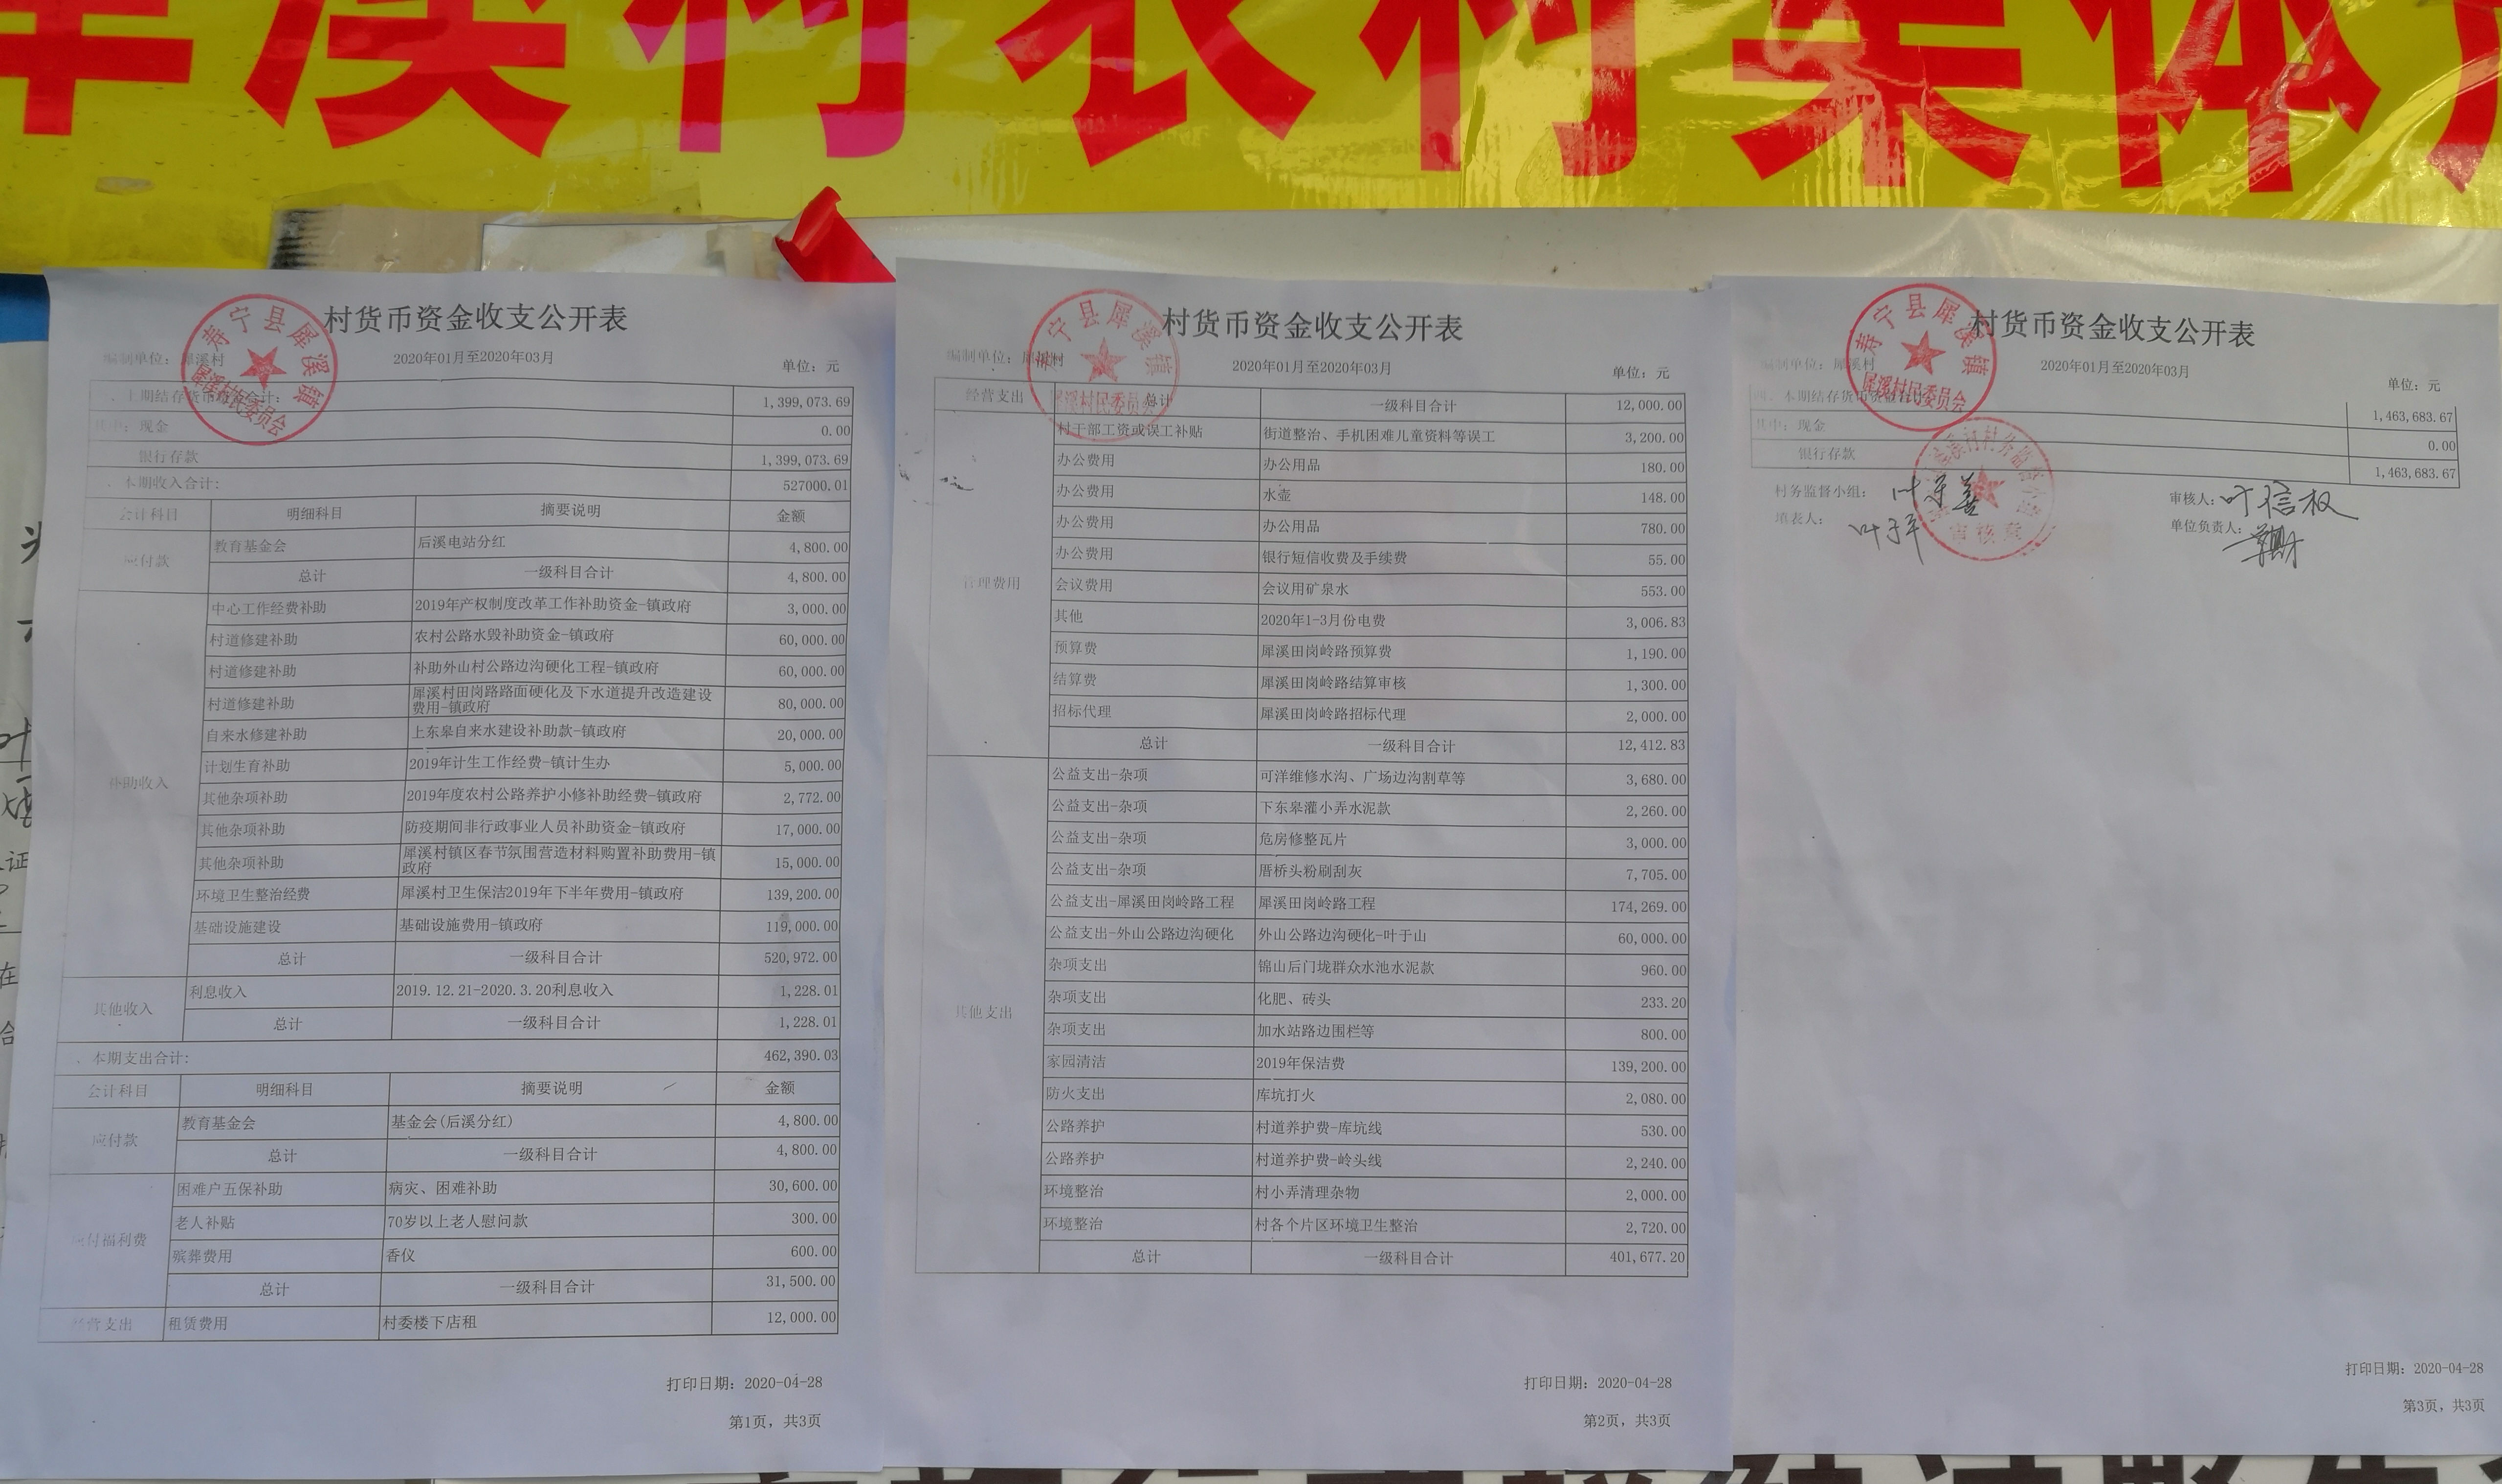 犀溪村农村集体
村货币资金收支公开表
编制单位：犀溪村 2020年01月至2020年03月 单位：元
寿宁县犀溪镇
犀溪村民委员会
一、上期结存货币资金合计： 1,399,073.69
其中：现金 0.00
银行存款 1,399,073.69
、本期收入合计： 527000.01
会计科目 明细科目 摘要说明 金额
应付款 教育基金会 后溪电站分红 4,800.00
总计 一级科目合计 4,800.00
补助收入 中心工作经费补助 2019年产权制度改革工作补助资金-镇政府 3,000.00
村道修建补助 农村公路水毁补助资金-镇政府 60,000.00
村道修建补助 补助外山村公路边沟硬化工程-镇政府 60,000.00
村道修建补助 犀溪村田岗路路面硬化及下水道提升改造建设
费用-镇政府 80,000.00
自来水修建补助 上东皋自来水建设补助款-镇政府 20,000.00
计划生育补助 2019年计生工作经费-镇计生办 5,000.00
其他杂项补助 2019年度农村公路养护小修补助经费-镇政府 2,772.00
其他杂项补助 防疫期间非行政事业人员补助资金-镇政府 17,000.00
其他杂项补助 犀溪村镇区春节氛围营造材料购置补助费用-镇
政府 15,000.00
环境卫生整治经费 犀溪村卫生保洁2019年下半年费用-镇政府 139,200.00
基础设施建设 基础设施费用-镇政府 119,000.00
总计 一级科目合计 520,972.00
其他收入 利息收入 2019.12.21-2020.3.20利息收入 1,228.01
总计 一级科目合计 1,228.01
、本期支出合计： 462,390.03
会计科目 明细科目 摘要说明 金额
应付款 教育基金会 基金会(后溪分红) 4,800.00
总计 一级科目合计 4,800.00
应付福利费 困难户五保补助 病灾、困难补助 30,600.00
老人补贴 70岁以上老人慰问款 300.00
殡葬费用 香仪 600.00
总计 一级科目合计 31,500.00
经营支出 租赁费用 村委楼下店租 12,000.00
打印日期：2020-04-28
第1页，共3页
村货币资金收支公开表
编制单位：犀溪村 2020年01月至2020年03月 单位：元
寿宁县犀溪镇
犀溪村民委员会
经营支出 总计 一级科目合计 12,000.00
管理费用 村干部工资或误工补贴 街道整治、手机困难儿童资料等误工 3,200.00
办公费用 办公用品 180.00
办公费用 水壶 148.00
办公费用 办公用品 780.00
办公费用 银行短信收费及手续费 55.00
会议费用 会议用矿泉水 553.00
其他 2020年1-3月份电费 3,006.83
预算费 犀溪田岗岭路预算费 1,190.00
结算费 犀溪田岗岭路结算审核 1,300.00
招标代理 犀溪田岗岭路招标代理 2,000.00
总计 一级科目合计 12,412.83
其他支出 公益支出-杂项 可洋维修水沟、广场边沟割草等 3,680.00
公益支出-杂项 下东皋灌小弄水泥款 2,260.00
公益支出-杂项 危房修整瓦片 3,000.00
公益支出-杂项 厝桥头粉刷刮灰 7,705.00
公益支出-犀溪田岗岭路工程 犀溪田岗岭路工程 174,269.00
公益支出-外山公路边沟硬化 外山公路边沟硬化-叶于山 60,000.00
杂项支出 锦山后门垅群众水池水泥款 960.00
杂项支出 化肥、砖头 233.20
杂项支出 加水站路边围栏等 800.00
家园清洁 2019年保洁费 139,200.00
防火支出 库坑打火 2,080.00
公路养护 村道养护费-库坑线 530.00
公路养护 村道养护费-岭头线 2,240.00
环境整治 村小弄清理杂物 2,000.00
环境整治 村各个片区环境卫生整治 2,720.00
总计 一级科目合计 401,677.20
打印日期：2020-04-28
第2页，共3页
村货币资金收支公开表
编制单位：犀溪村 2020年01月至2020年03月 单位：元
寿宁县犀溪镇
犀溪村民委员会
四、本期结存货币资金合计： 1,463,683.67
其中：现金 0.00
银行存款 1,463,683.67
村务监督小组： 审核人：叶信权
填表人： 单位负责人：
审核章
打印日期：2020-04-28
第3页，共3页